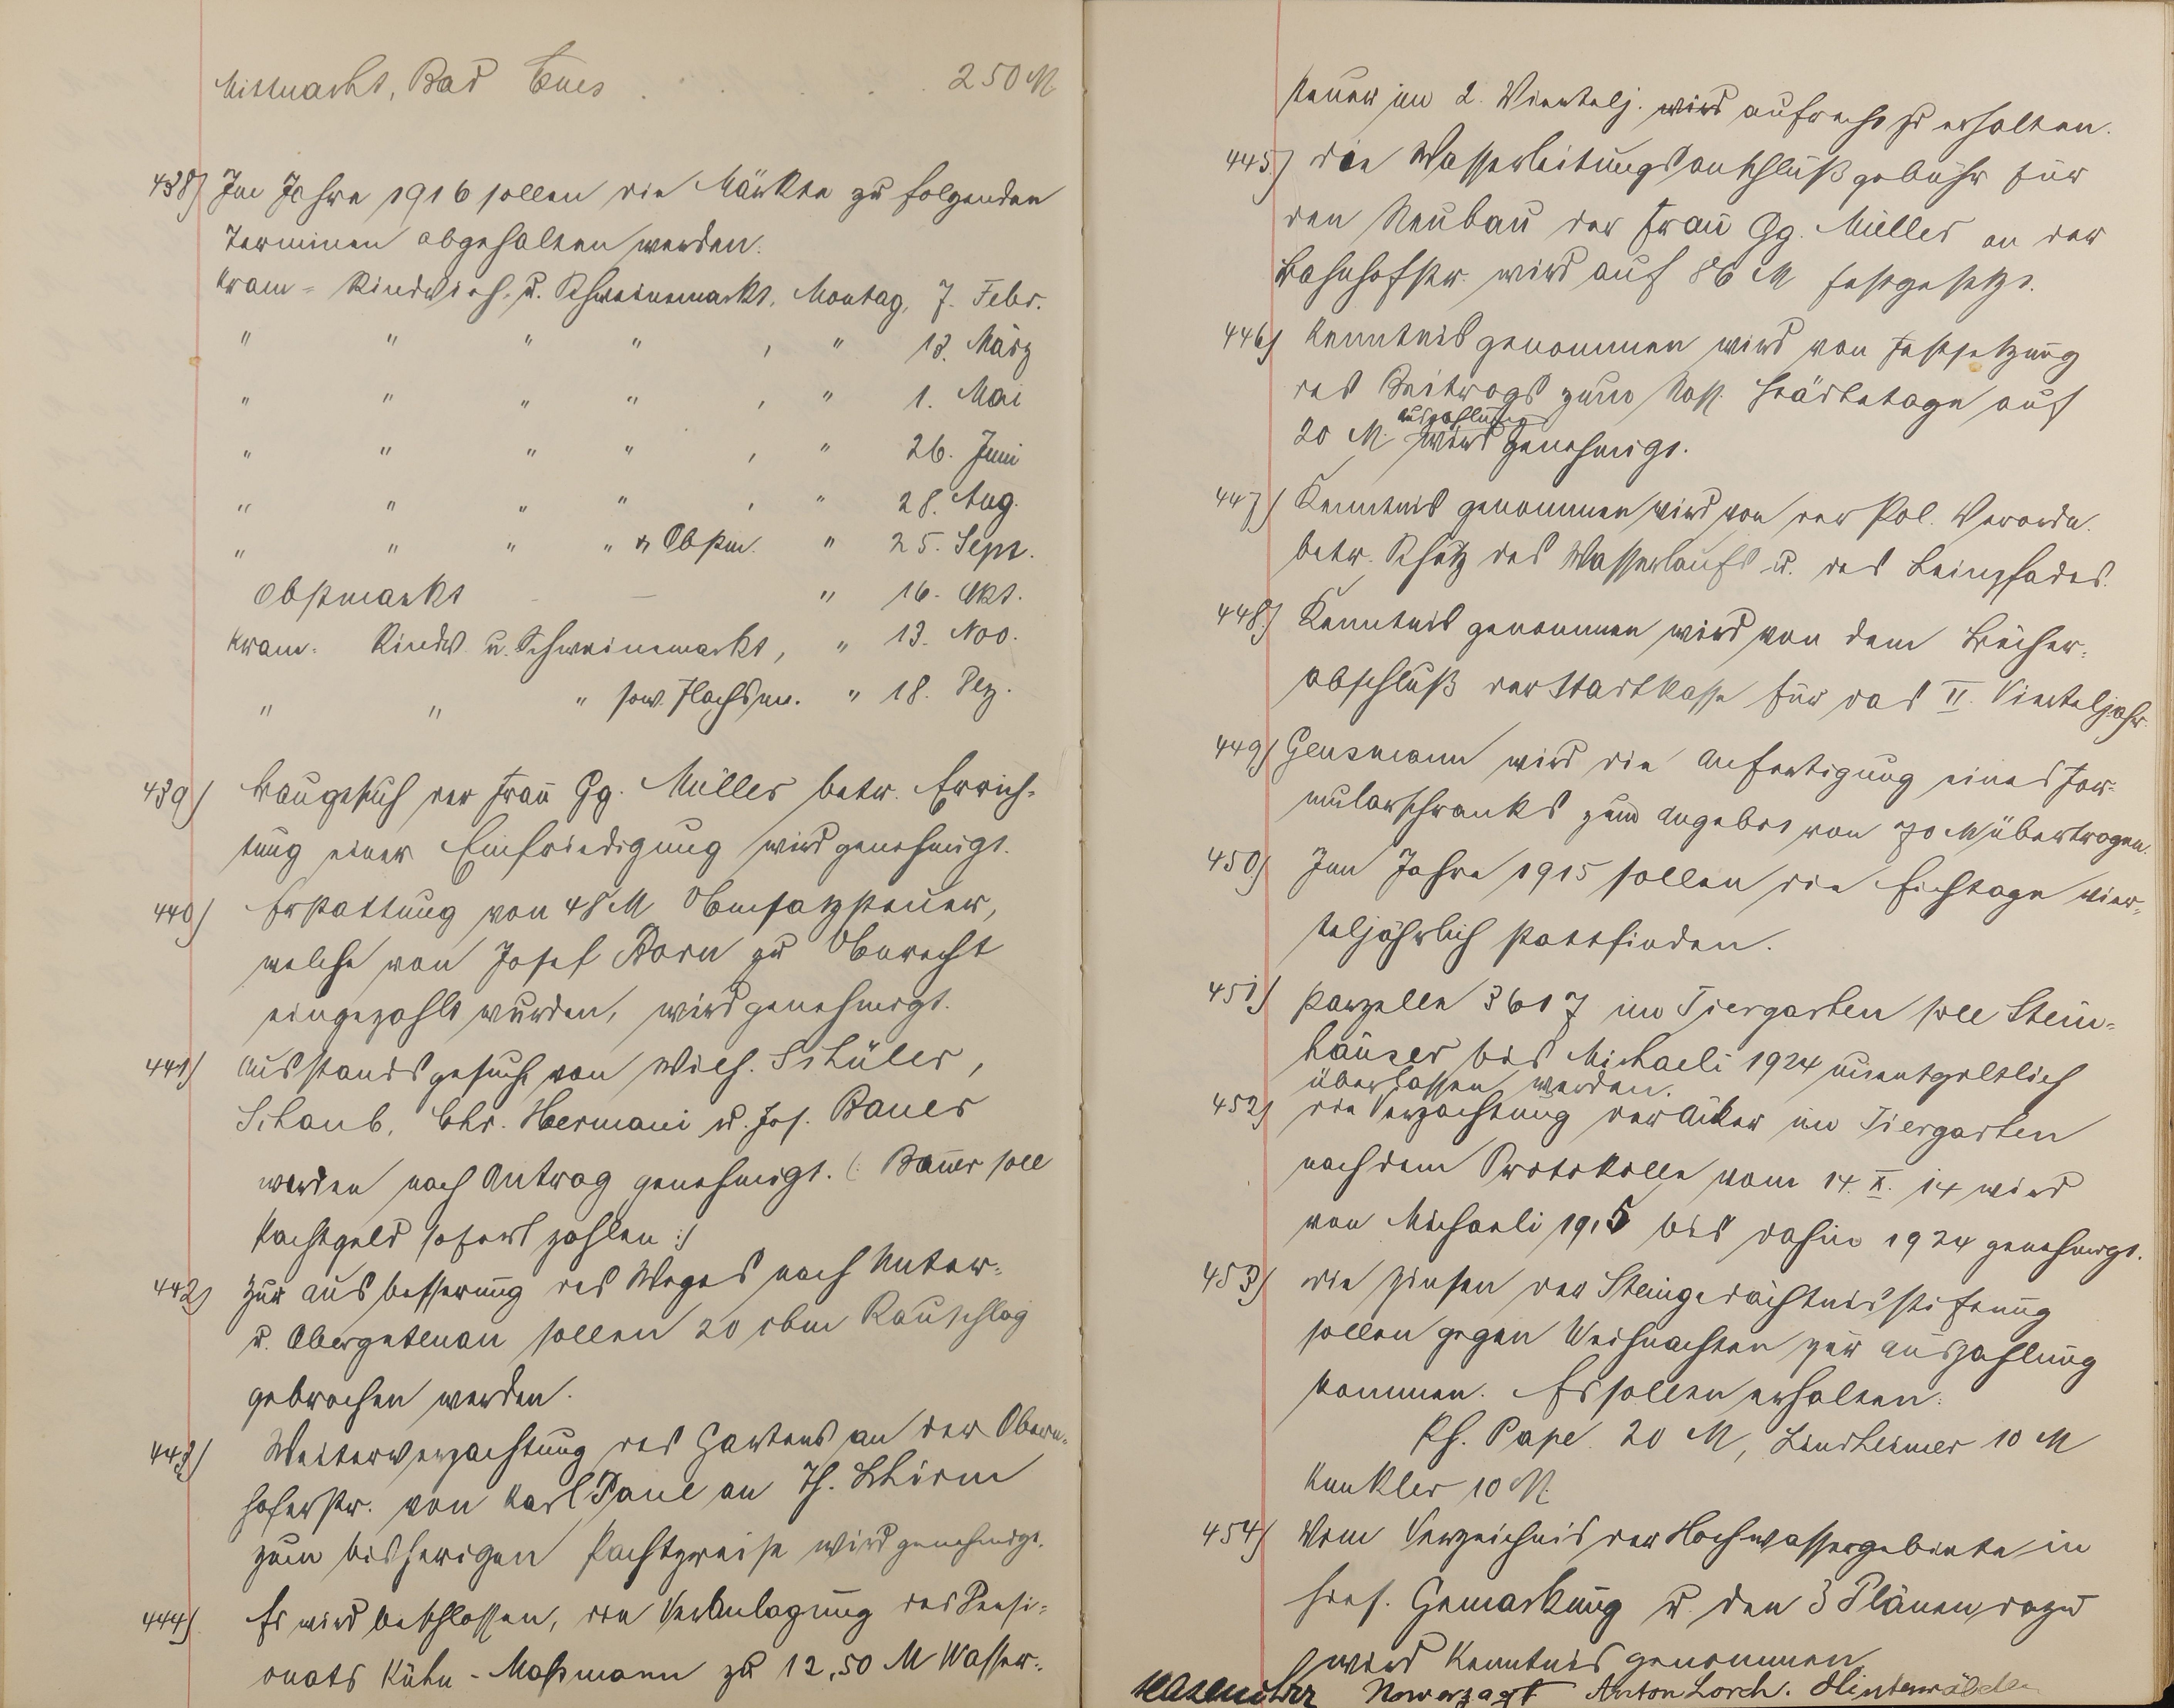 Mittnacht, Bad Ems . . . . 250 M
438) Im Jahre 1916 sollen die Märkte zu folgenden
Terminen abgehalten werden:
Kram- Rindvieh- u. Schweinemarkt, Montag, 7. Febr.
" " " " , " 13. März
" " " " , " 1. Mai
" " " " , " 26. Juni
" " " " , " 28. Aug.
" " " " u Obstm. " 25. Sept.
Obstmarkt — — " 16. Okt.
Kram- Rindv. u. Schweinemarkt, " 13. Nov.
" " " sow. Flachsm. " 18. Dez.
439) Baugesuch der Frau Gg. Müller betr. Errich-
tung einer Einfriedigung wird genehmigt.
440) Erstattung von 48 M Umsatzsteuer,
welche von Josef Born zu Unrecht
eingezahlt wurden, wird genehmigt.
441) Ausstandsgesuche von Wilh. Schüler,
Schaub, Chr. Hermani u. Jos. Bauer
werden nach Antrag genehmigt. (: Bauer soll
Pachtgeld sofort zahlen :)
442) Zur Ausbesserung des Weges nach Unter-
u. Obergutenau sollen 20 cbm Rauschlag
gebrochen werden.
443) Weiterverpachtung des Gartens an der Obern-
hoferstr. von Karl Paul an Th. Schirm
zum bisherigen Pachtpreise wird genehmigt.
444) Es wird beschlossen, die Veranlagung des Pensi-
onats Kühn-Maßmann zu 12,50 M Wasser-
steuer im 2. Viertelj. wird aufrecht zu erhalten.
445) Die Wasserleitungsanschlußgebühr für
den Neubau der Frau Gg. Müller an der
Bahnhofstr. wird auf 86 M festgesetzt.
446) Kenntnis genommen wird von Festsetzung
des Beitrags zum Nass. Städtetage auf
20 M. Auszahlung
wird genehmigt.
447) Kenntnis genommen wird von der Pol. Verordn.
betr. Schutz des Wasserlaufs u. des Leinpfades.
448) Kenntnis genommen wird von dem Bücher-
abschluß der Stadtkasse für das II. Vierteljahr.
449) Gensmann wird die Anfertigung eines For-
mularschranks zum Angebot von 70 M übertragen.
450) Im Jahre 1915 sollen die Eichtage vier-
teljährlich stattfinden.
451) Parzelle 3617 im Tiergarten soll Stein-
häuser bis Michaeli 1924 unentgeltlich
überlassen werden.
452) Die Verpachtung der Äcker im Tiergarten
nach dem Protokolle vom 14. X. 14 wird
von Michaeli 1915 bis dahin 1924 genehmigt.
453) Die Zinsen der Steingedächtnisstiftung
sollen gegen Weihnachten zur Auszahlung
kommen. Es sollen erhalten:
Ph. Pape 20 M, Lindheimer 10 M
Kunkler 10 M.
454) Vom Verzeichnis der Hochwassergebiete in
hies. Gemarkung u. den 3 Plänen dazu
wird Kenntnis genommen
Hasenclever Anton Lorch. Hinterwälder